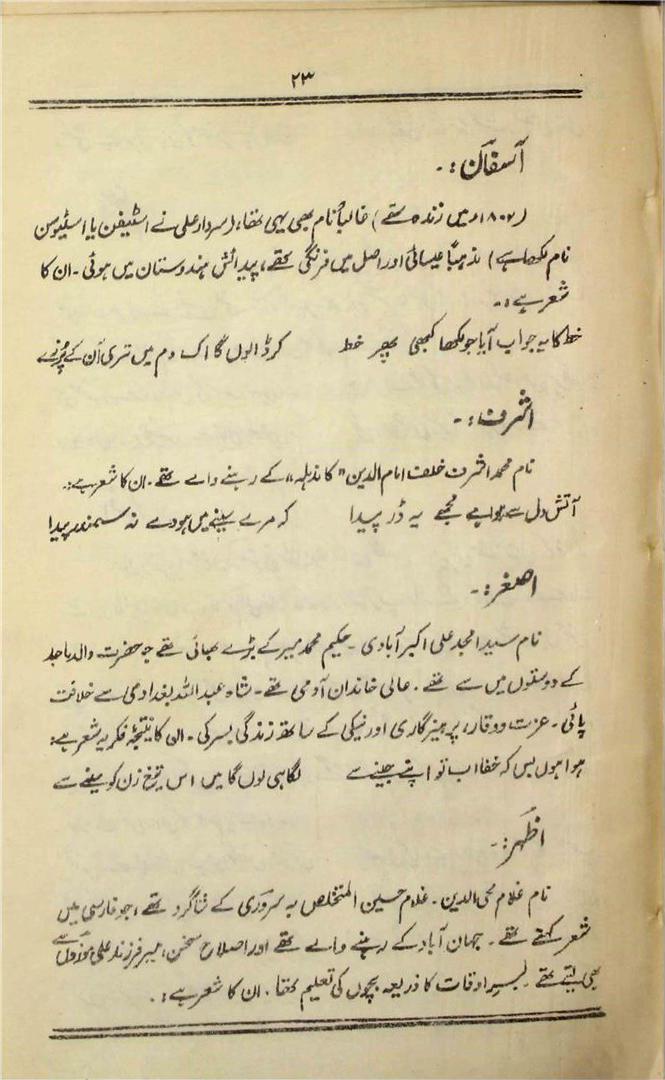 ۲۳
آسفان:۔
(۱۸۰۷ء میں زندہ تھے) غالباً نام بھی یہی تھا، (سردار علی نے اسٹیفن یا اسٹیوسن
نام لکھا ہے) مذہباً عیسائی اور اصل میں فرنگی تھے، پیدائش ہندوستان میں ہوئی۔ ان کا
شعر ہے:۔
خط کا یہ جواب آیا جو لکھا کبھی پھر خط کر ڈالوں گا اک دم میں تری اُن کے پُرزے
اشرف:۔
نام محمد اشرف خلف امام الدین "کاندہلہ" کے رہنے والے تھے۔ ان کا شعر ہے:۔
آتش دل سے ہوا ہے مجھے یہ ڈر پیدا کہ مرے سینے میں ہووے نہ سمندر پیدا
اصغر:۔
نام سید امجد علی اکبرآبادی۔ حکیم محمد میر کے بڑے بھائی تھے جو حضرت والد ماجد
کے دوستوں میں سے تھے۔ عالی خاندان آدمی تھے۔ شاہ عبداللہ بغدادی سے خلافت
پائی۔ عزت و وقار، پرہیزگاری اور نیکی کے ساتھ زندگی بسر کی۔ ان کا نتیجۂ فکر یہ شعر ہے:
ہوا ہوں بس کہ خفا اب تو اپنے جینے سے لگا ہی لوں گا میں اس تیغ زن کو سینے سے
اظہر:۔
نام غلام محی الدین۔ غلام حسین المتخلص بہ سروری کے شاگرد تھے، جو فارسی میں
شعر کہتے تھے۔ جہان آباد کے رہنے والے تھے اور اصلاح سخن، میر فرزند علی موزوں سے
بھی لیتے تھے۔ بسر اوقات کا ذریعہ بچوں کی تعلیم تھا۔ ان کا شعر ہے:۔